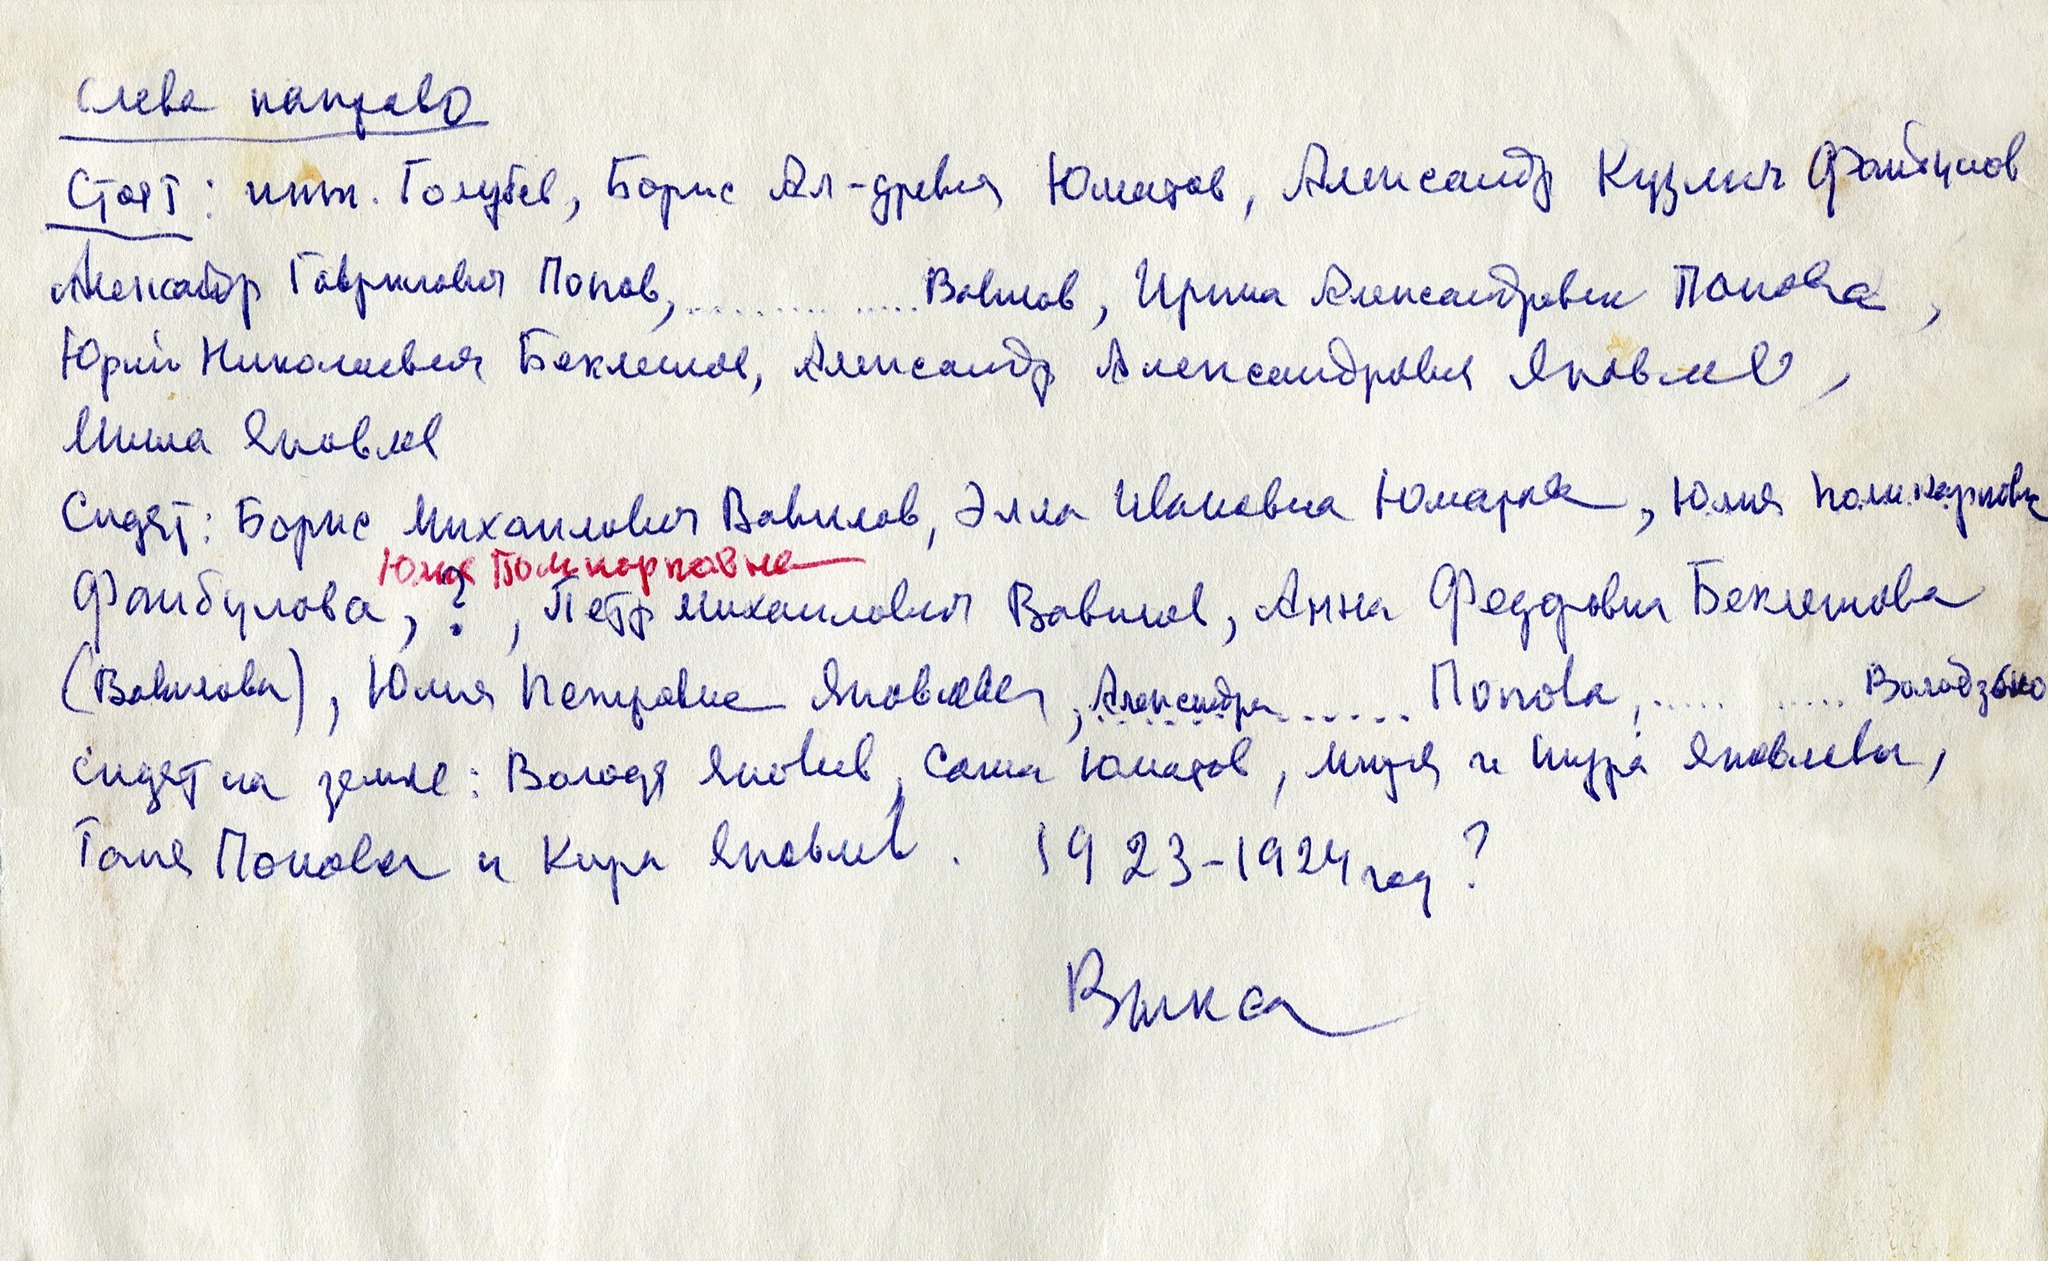 Слева направо
Стоят: инж. Голубев, Борис Ал-дрович Юматов, Александр Кузмич Файбулов
Александр Гаврилович Попов, ................ Вавилов, Ирина Александровна Попова,
Юрий Николаевич Беклешов, Александр Александрович Яковлев,
Миша Яковлев
Сидят: Борис Михайлович Вавилов, Элла Ивановна Юматова, Юлия Поликарповна
Юлия Поликарповна
Файбулова, ?, Пётр Михайлович Вавилов, Анна Федоровна Беклешова
(Вавилова), Юлия Петровна Яковлева, Александра ....... Попова, ........... Володзько
сидят на земле: Володя Яковлев, Саша Юматов, Митя и Шура Яковлевы,
Таня Попова и Кира Яковлев. 1923-1924 год?
Выкса